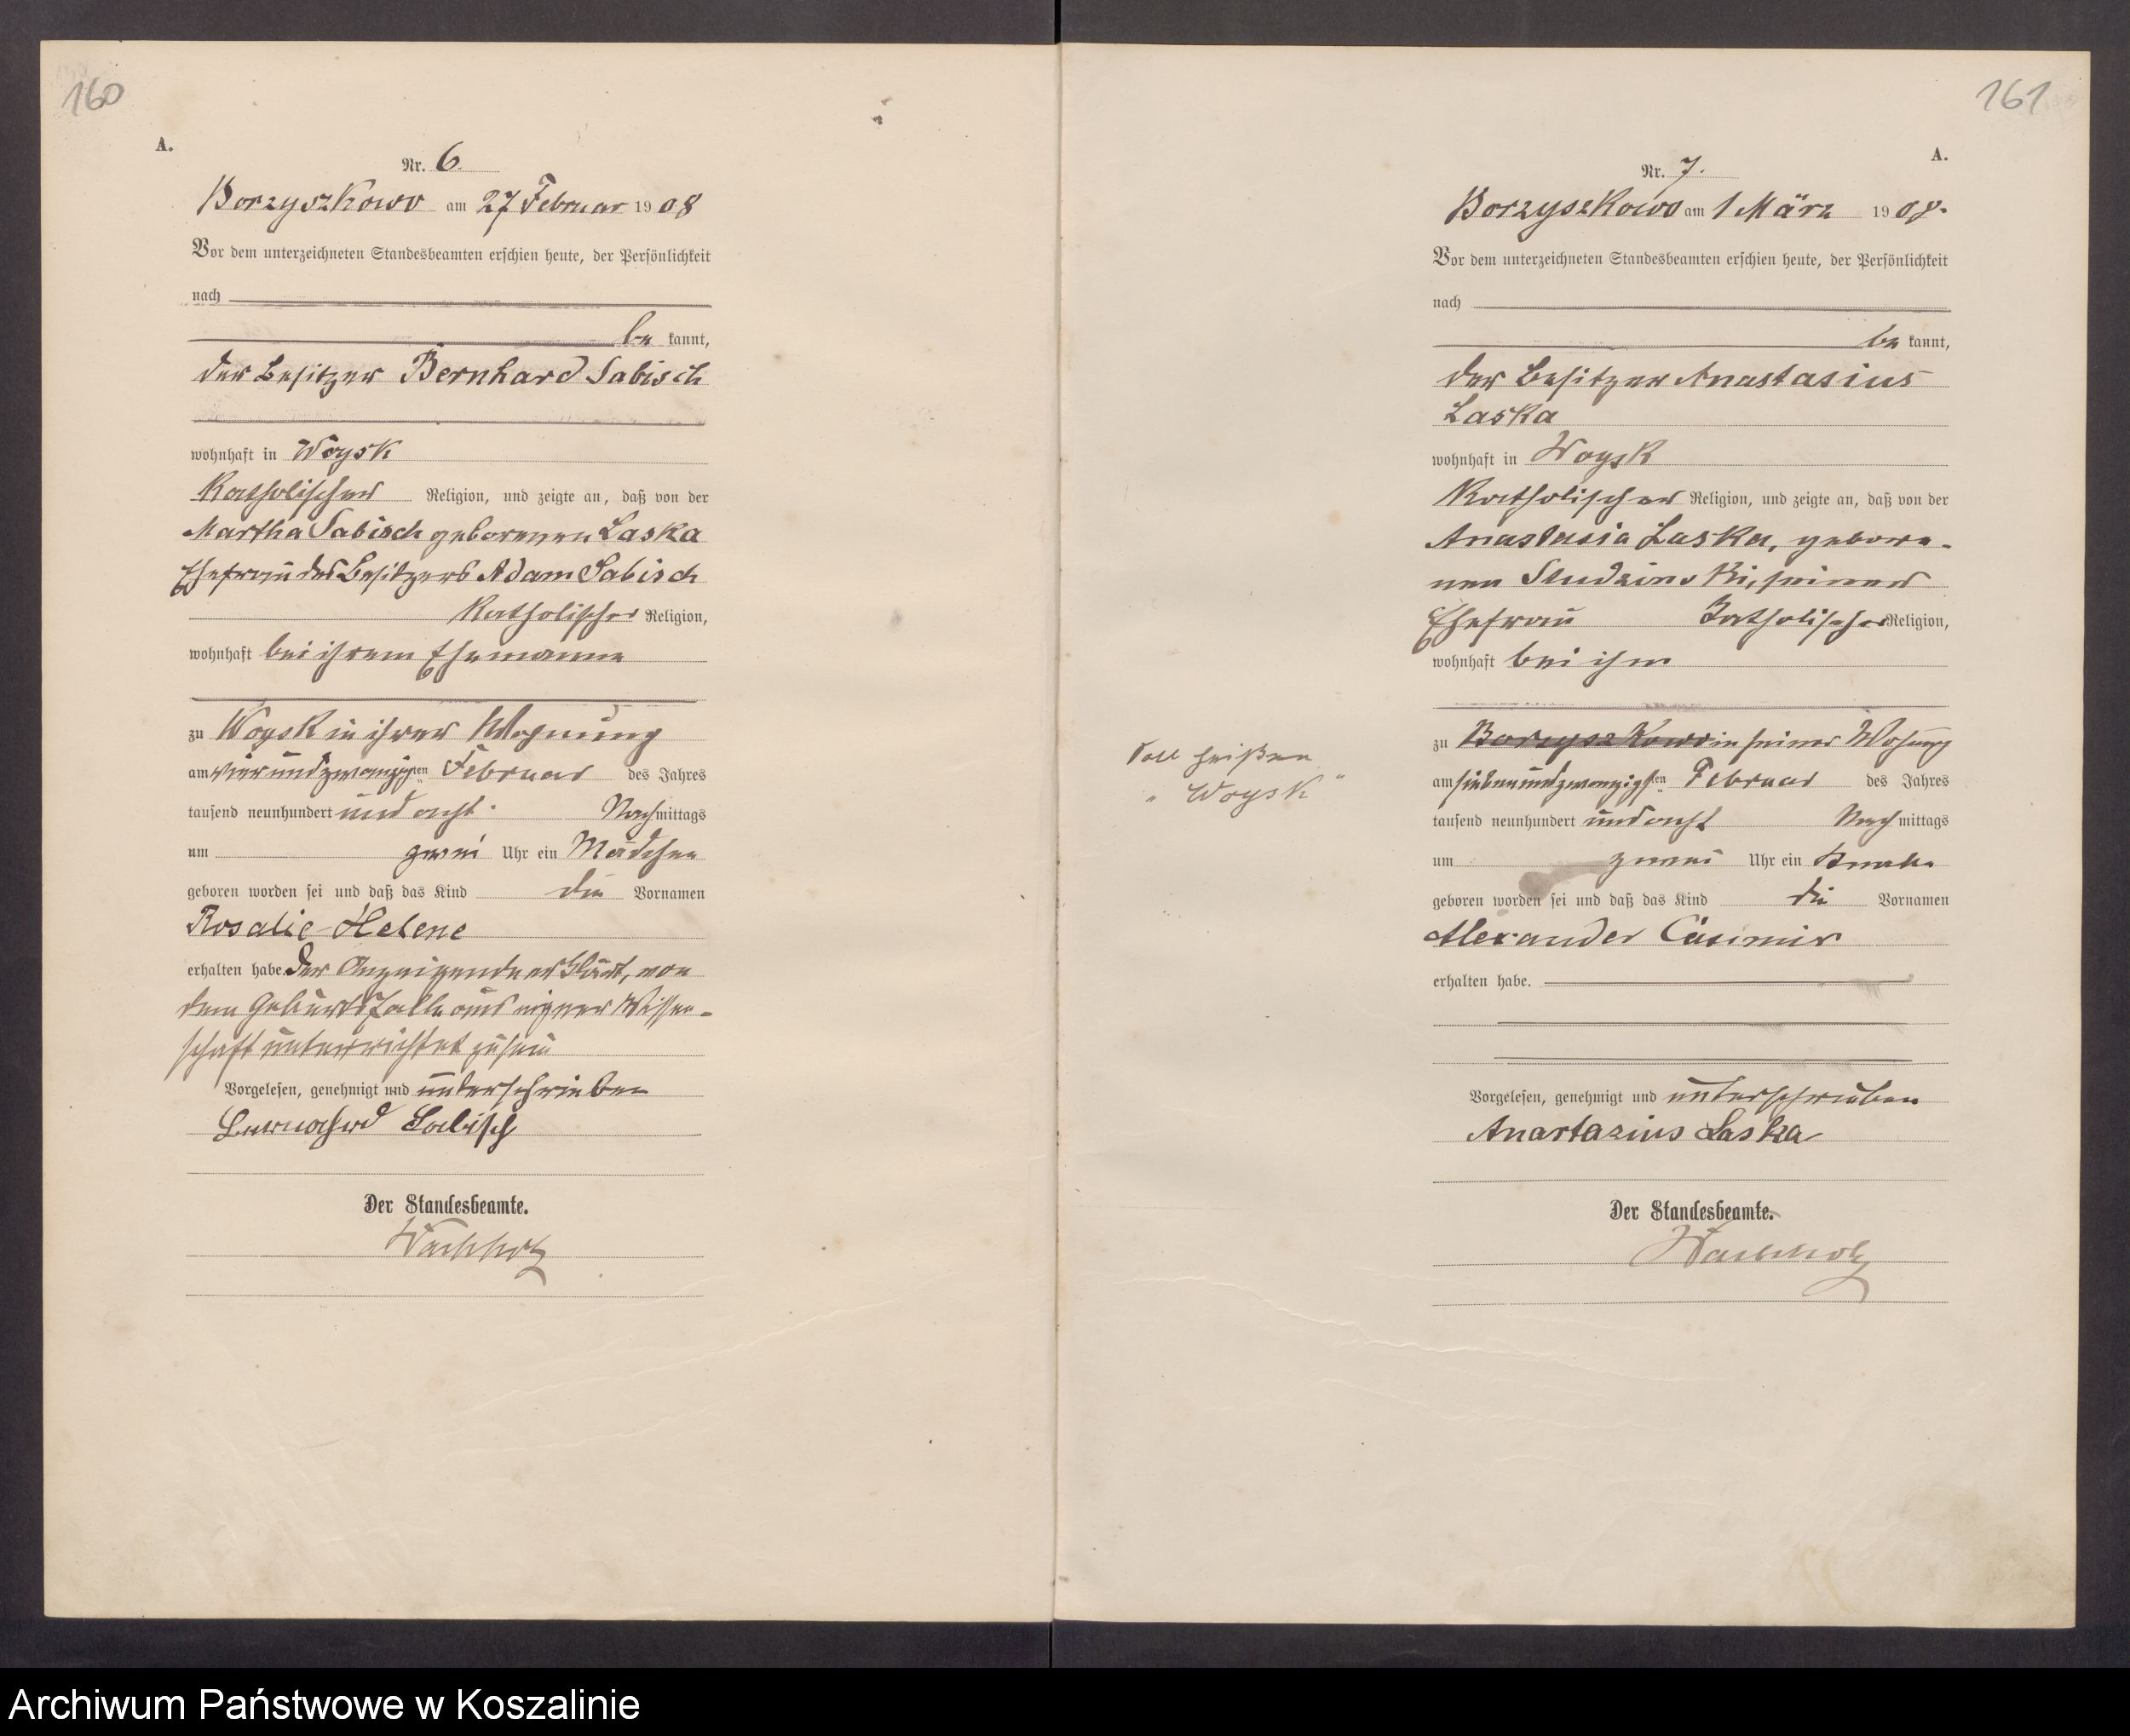 160
A.
Nr. 6.
Borzyszkowo am 27 Februar 1908
Vor dem unterzeichneten Standesbeamten erschien heute, der Persönlichkeit
nach
be kannt,
der Besitzer Bernhard Sabisch
wohnhaft in Woysk
katholischer Religion, und zeigte an, daß von der
Martha Sabisch geborenen Laska
Ehefrau des Besitzers Adam Sabisch
katholischer Religion,
wohnhaft bei ihrem Ehemanne
zu Woysk in ihrer Wohnung
am vierundzwanzigsten Februar des Jahres
tausend neunhundert und acht Nachmittags
um zwei Uhr ein Mädchen
geboren worden sei und daß das Kind die Vornamen
Rosalie Helene
erhalten habe. Der Anzeigende erklärt, von
dem Geburtsfalle aus eigener Wissen-
schaft unterrichtet zu sein
Vorgelesen, genehmigt und unterschrieben
Bernahrd Sabisch
Der Standesbeamte.
Wachholz
161
A.
Nr. 7.
Borzyszkowo am 1 März 1908.
Vor dem unterzeichneten Standesbeamten erschien heute, der Persönlichkeit
nach
be kannt,
der Besitzer Anastasius
Laska
wohnhaft in Woysk
katholischer Religion, und zeigte an, daß von der
Anastasia Laska, gebore-
nen Studzinski, seiner
Ehefrau katholischer Religion,
wohnhaft bei ihm
zu Borzyszkowo in seiner Wohung
Soll heißen
"Woysk"
am siebenundzwanzigsten Februar des Jahres
tausend neunhundert und acht Nachmittags
um zwei Uhr ein Knabe
geboren worden sei und daß das Kind die Vornamen
Alexander Casimir
erhalten habe.
Vorgelesen, genehmigt und unterschrieben
Anastazius Laska
Der Standesbeamte.
Wachholz
Archiwum Państwowe w Koszalinie